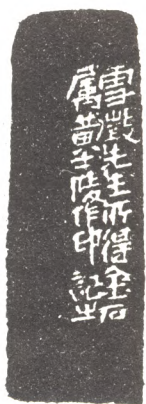 雪澂先生所得金石
属黄士陵作印記之